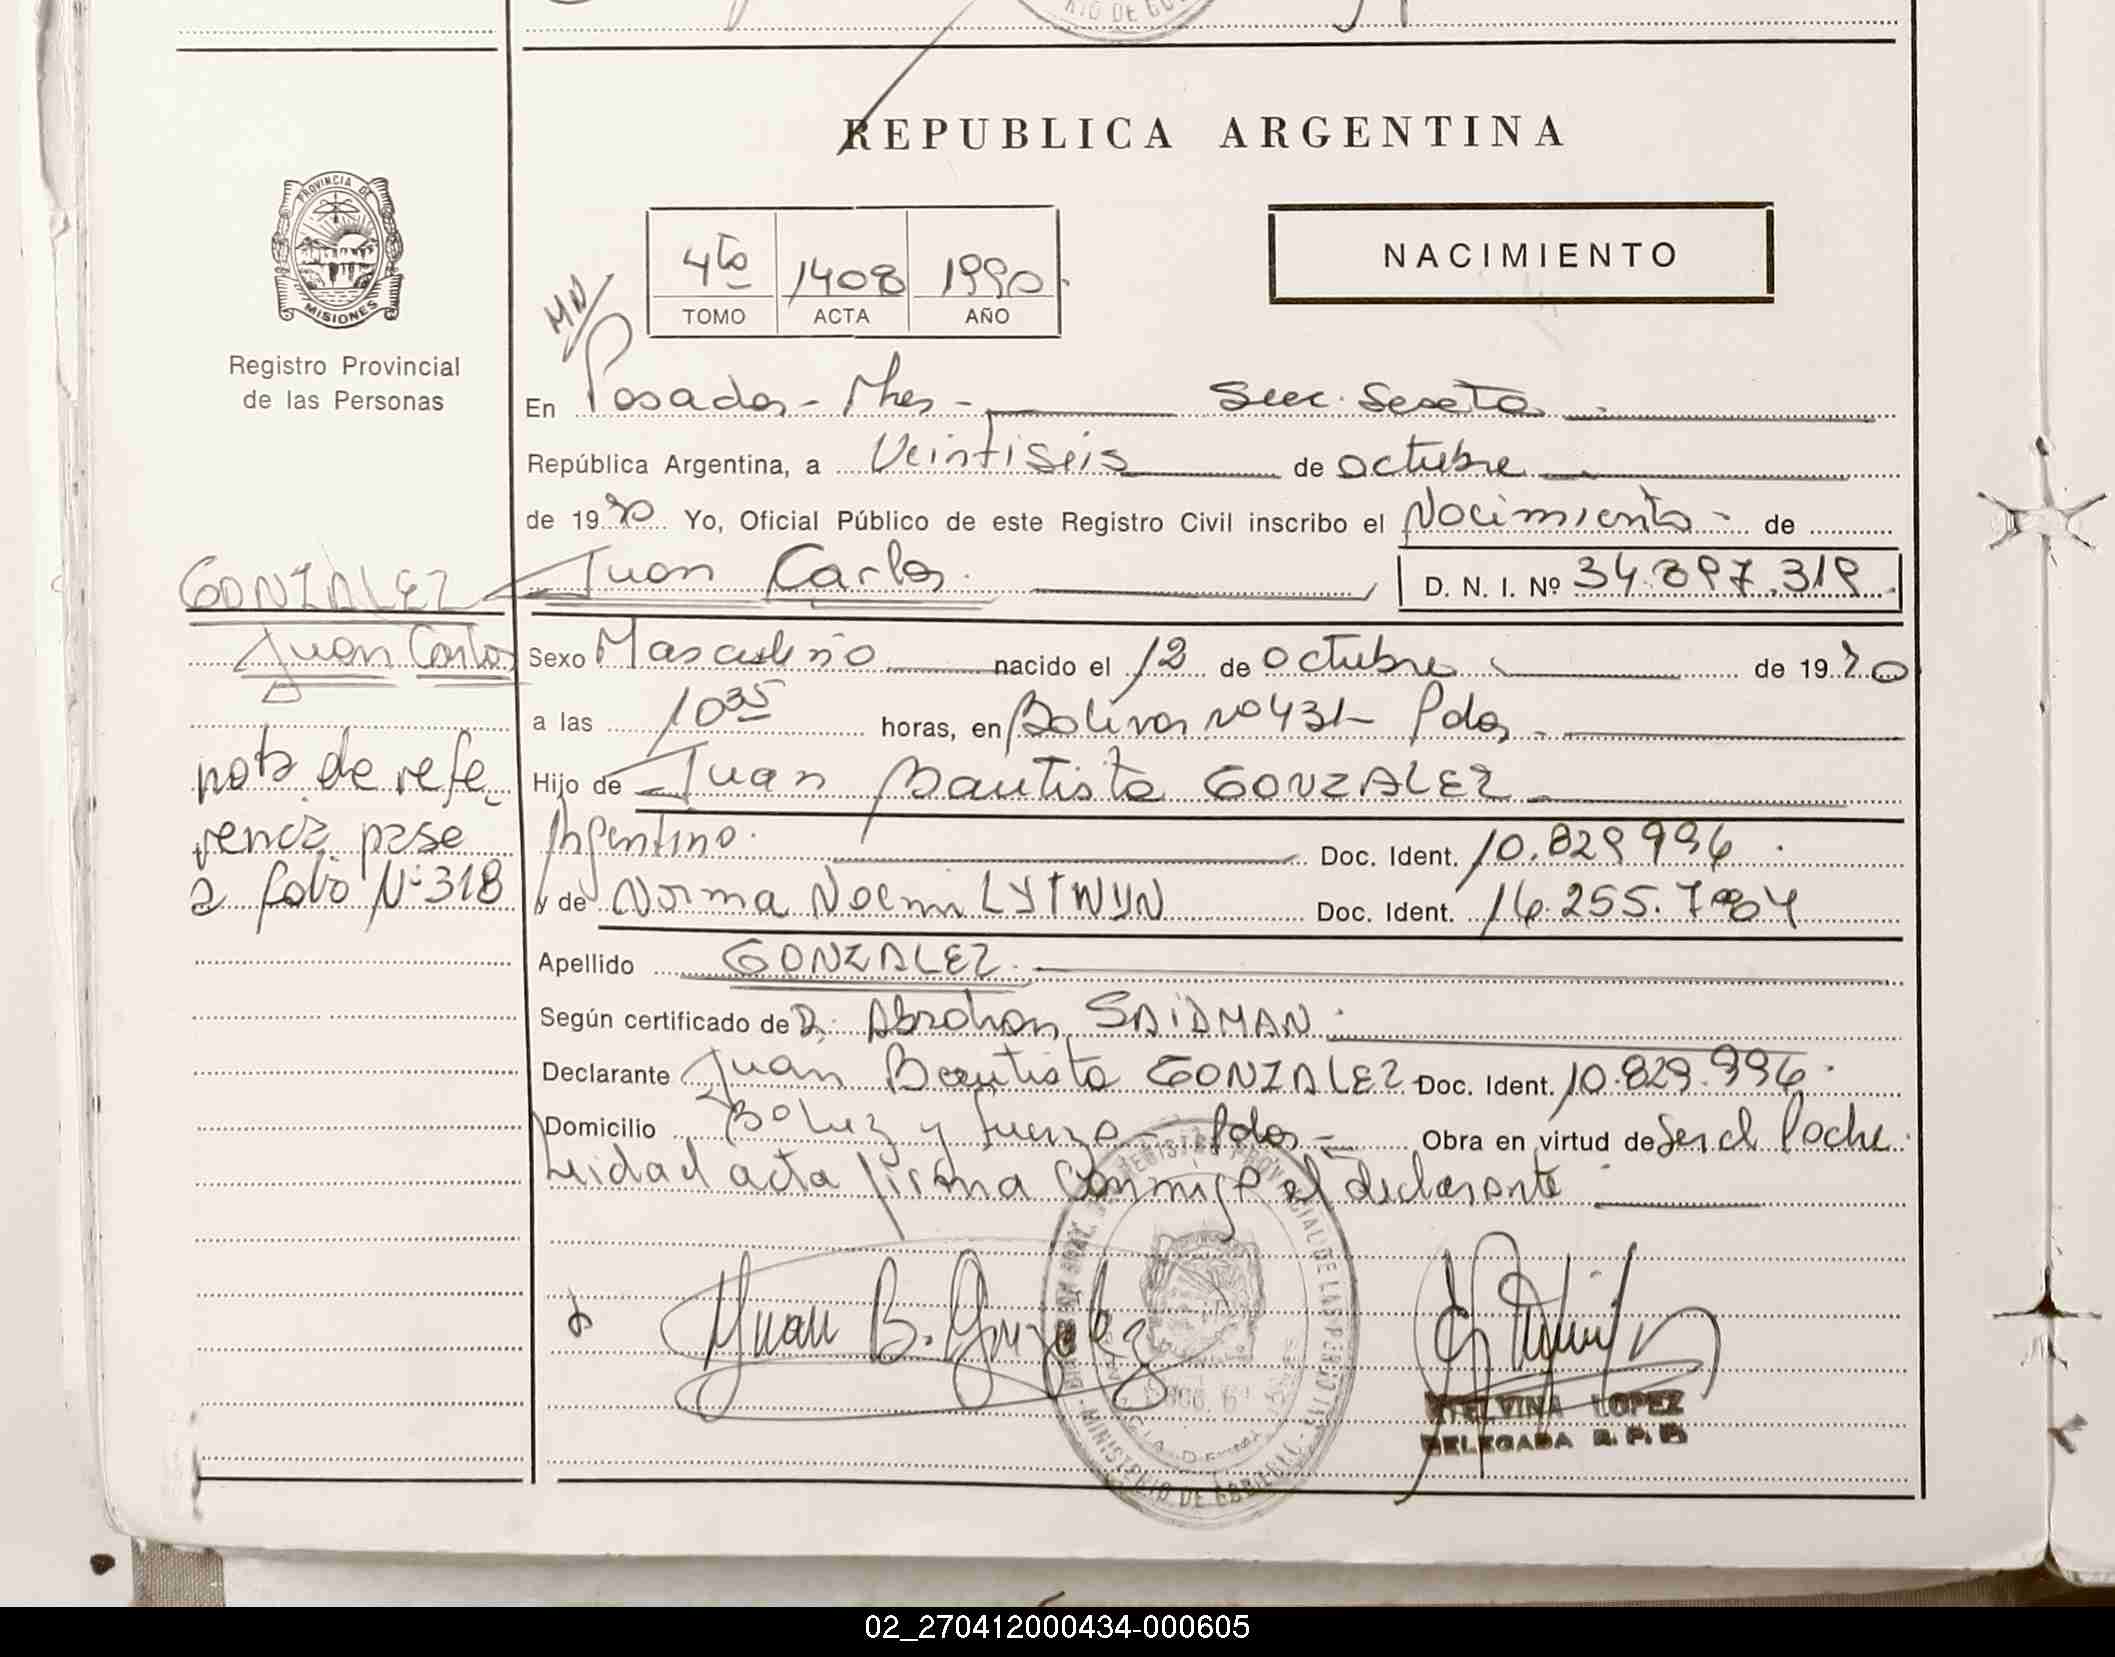 REPUBLICA ARGENTINA
PROVINCIA DE
MISIONES
Registro Provincial
de las Personas
4to 1408 1990
TOMO ACTA AÑO
NACIMIENTO
En Posadas - Mnes - Secc. Sexta
República Argentina, a Veintiseis de octubre
de 1990 Yo, Oficial Público de este Registro Civil inscribo el Nacimiento - de
GONZALEZ Juan Carlos. D. N. I. Nº 34.897.319
Juan Carlos Sexo Masculino nacido el 12 de octubre de 1990
a las 10 35 horas, en Bolivar nº 431- Pdas
nota de refe- Hijo de Juan Bautista GONZALEZ
rencia pase Argentino. Doc. Ident. 10.829.996
a folio Nº 318 y de Norma Noemi LYTWYN Doc. Ident. 16.255.784
Apellido GONZALEZ.
Según certificado de D. Abrahan SAIDMAN.
Declarante Juan Bautista GONZALEZ Doc. Ident. 10.829.996
Domicilio Bº Luz y Fuerza - Pdas - Obra en virtud de
leida el acta firma conmigo el declarante
Juan B. Gonzalez
LOPEZ
DELEGADA R. P. P.
02_270412000434-000605